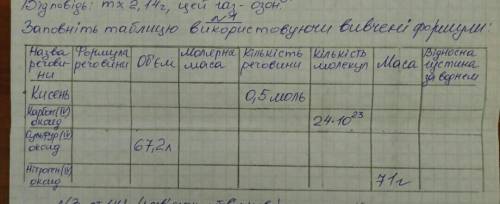 Відповідь: m x 2,14г, цей газ - озон.
№1
Заповніть таблицю використовуючи вивчені формули:
Назва речови- ни | Формула речовини | Об'єм | Молярна маса | Кількість речовини | Кількість молекул | Маса | Відносна густина за воднем
Кисень 0,5 моль
Карбон(IV) оксид 24·10²³
Сульфур(IV) оксид 67,2л
Нітроген(IV) оксид 71г